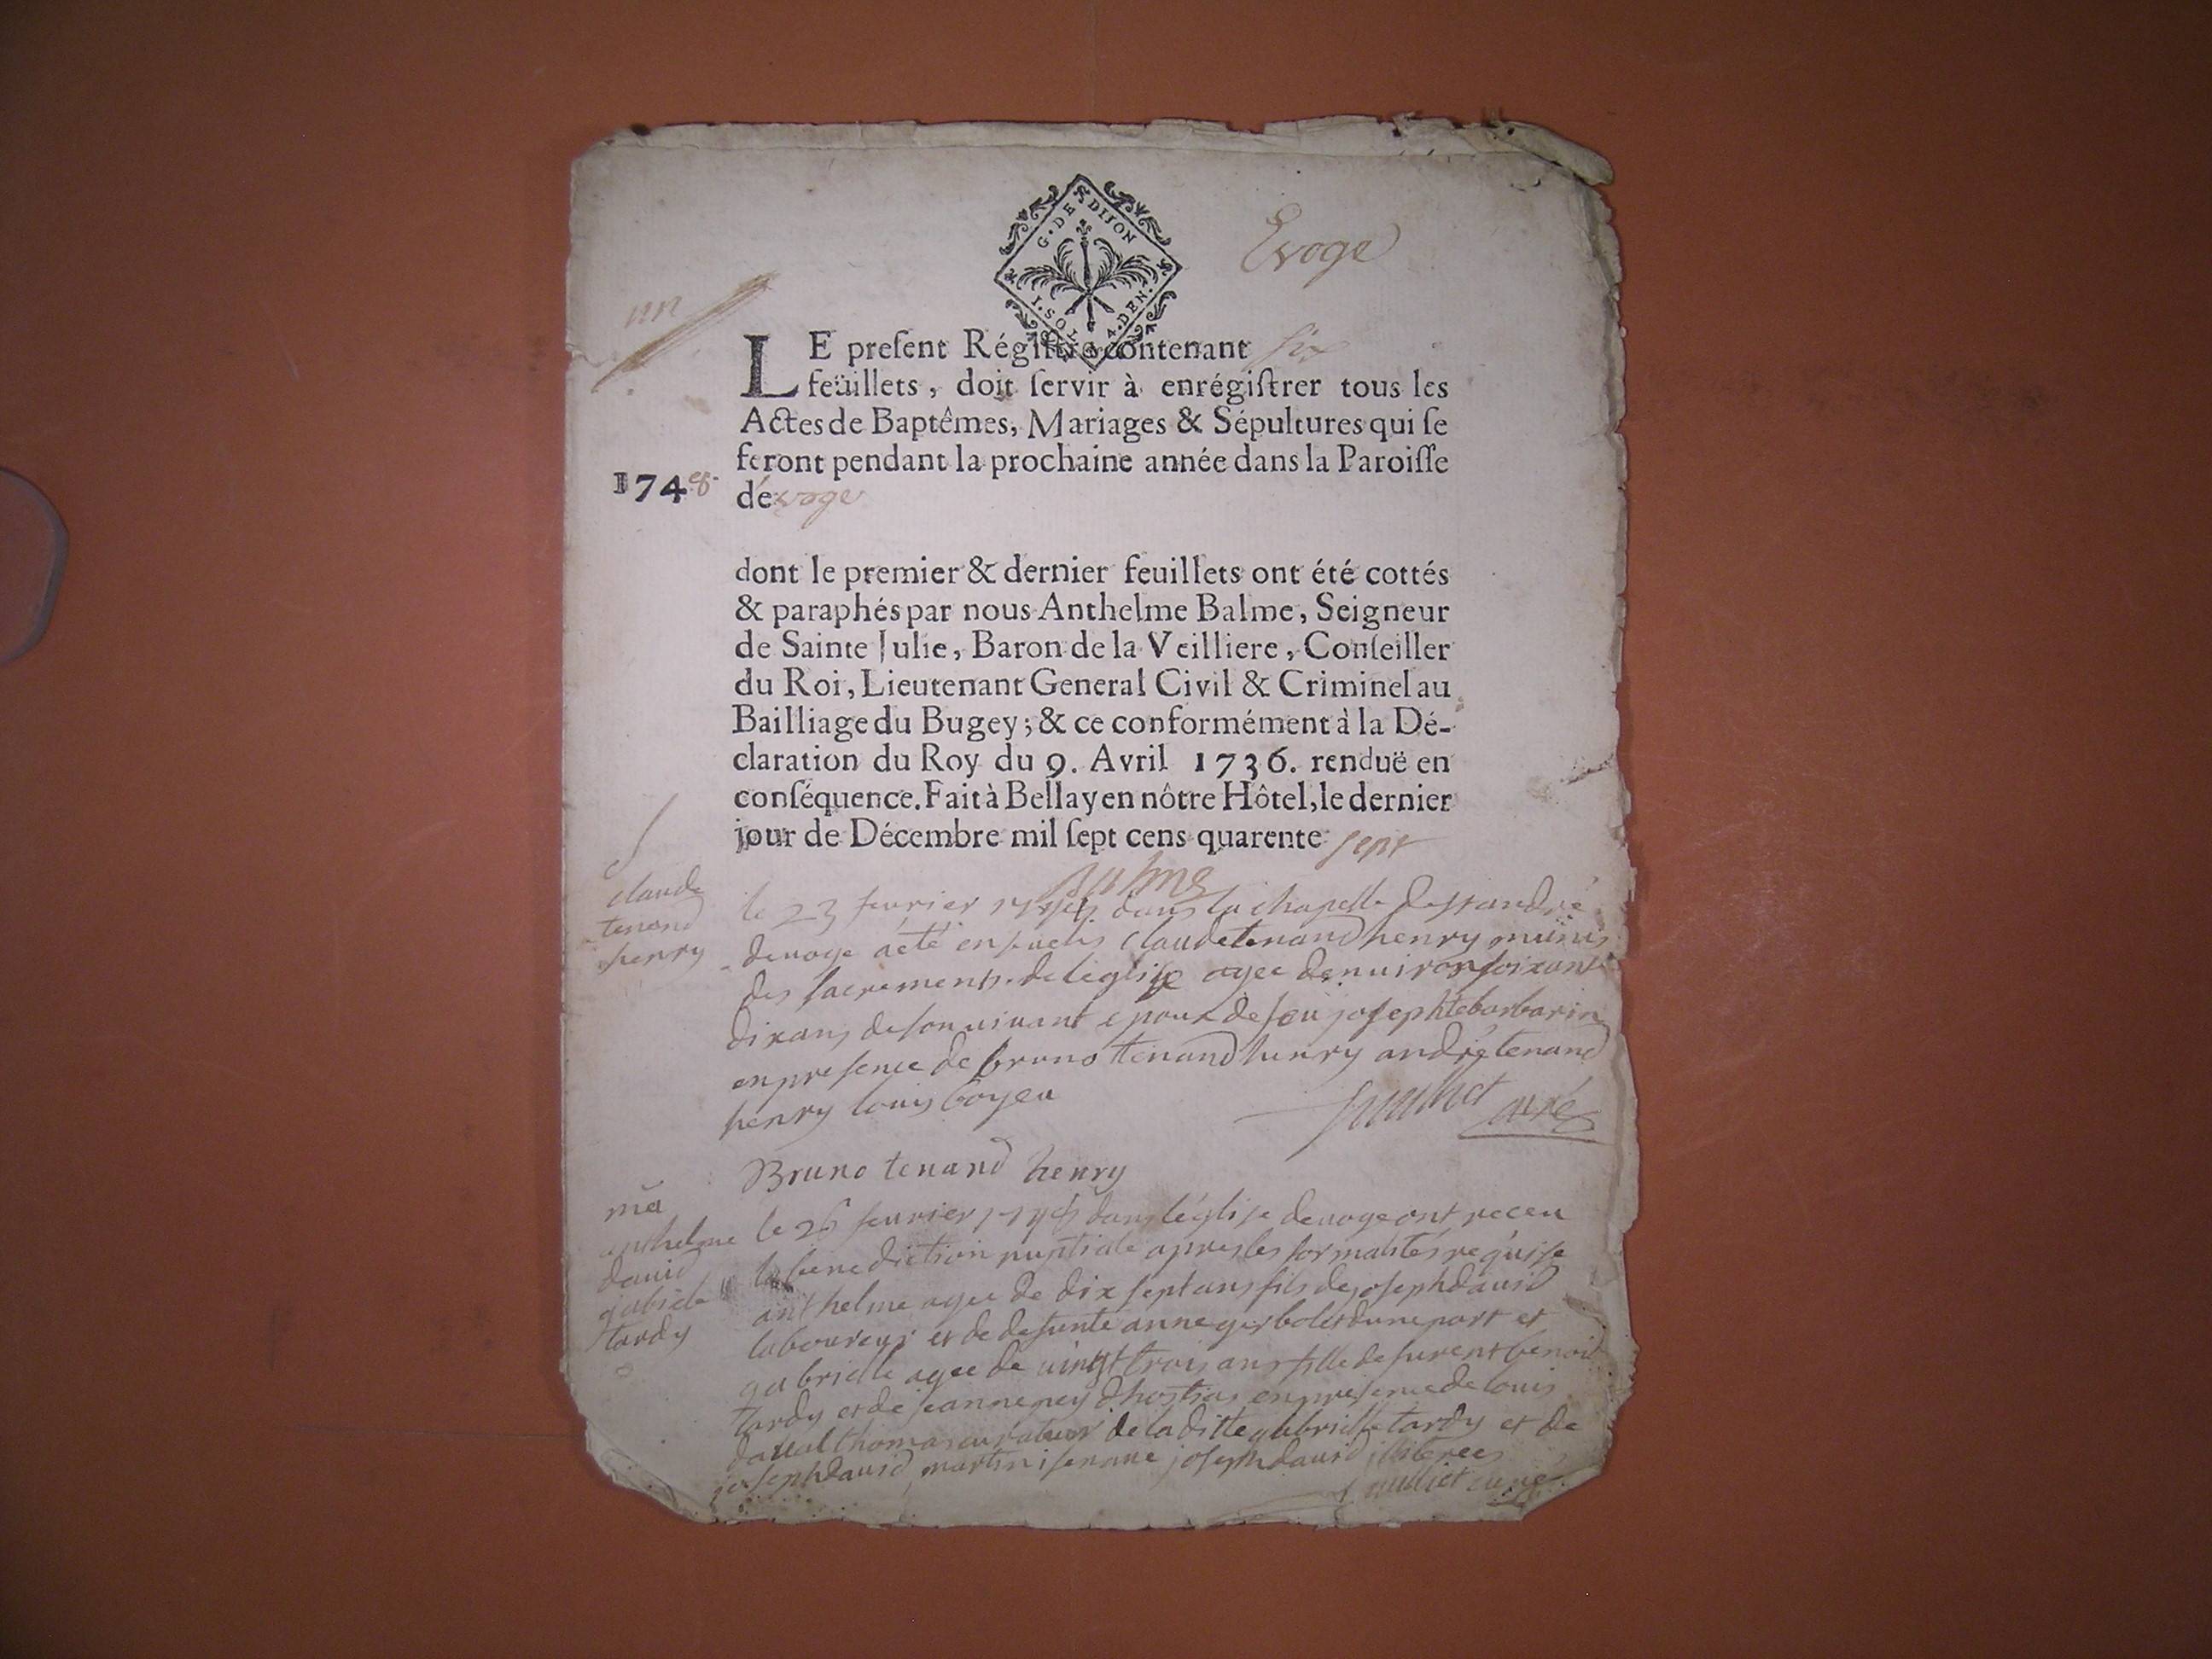 G. DE DIJON
I. SOL 4. DEN.
Evoge
un
LE preſent Régiſtre contenant six
feüillets, doit ſervir à enrégiſtrer tous les
Actes de Baptêmes, Mariages & Sépultures qui ſe
feront pendant la prochaine année dans la Paroiſſe
1748.
de voge
dont le premier & dernier feuillets ont été cottés
& paraphés par nous Anthelme Balme, Seigneur
de Sainte Julie, Baron de la Veilliere, Conſeiller
du Roi, Lieutenant General Civil & Criminel au
Bailliage du Bugey; & ce conformément à la Dé-
claration du Roy du 9. Avril 1736. renduë en
conſéquence. Fait à Bellay en nôtre Hôtel, le dernier
jour de Décembre mil ſept cens quarente sept
Balme
claude
tenand
henry
le 23 fevrier 1748 dans la chapelle de st andré
devoge a eté ensevelis claude tenand henry munis
des sacrements de léglise agee denuiron soixante
dix ans de son uiuant epoux de feu josephte barbarin
en presence de bruno tenand henry andré tenand
henry louis boyeu
curé
Bruno tenand henry
ma
anthelme
david
gabriele
tardy
le 26 feurier 1748 dans léglise deuoge ont receu
la benediction nuptiale apres les formalités requise
anthelme agee de dix sept ans fils de joseph dauid
laboureur et de defunte anne gerbolet dune part et
gabrielle agee de uingt trois ans fille de furent benoit
tardy et de jeanne ney dhostias en presence de louis
thomas curateur de la ditte gabrielle tardy et de
joseph dauid martin joseph dauid illiterees
curé